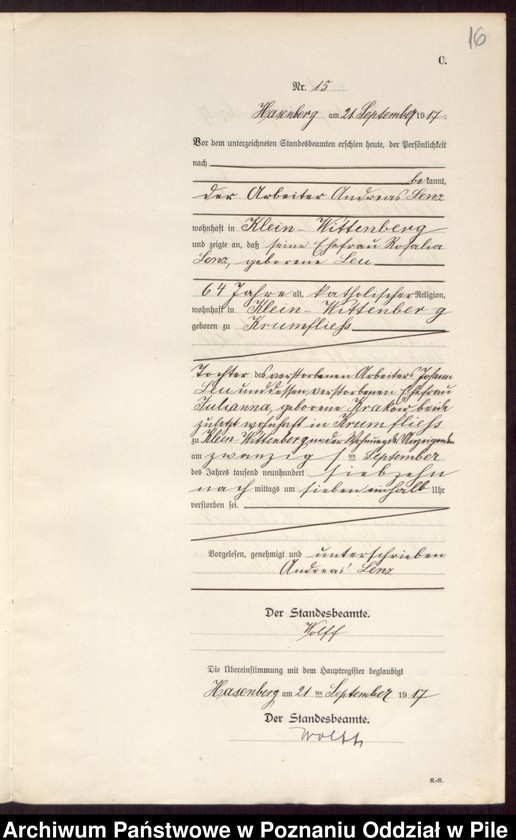 16
C.
Nr. 15
Hasenberg am 21 September 1917.
Vor dem unterzeichneten Standesbeamten erschien heute, der Persönlichkeit
nach
be kannt,
der Arbeiter Andreas Lenz
wohnhaft in Klein-Wittenberg
und zeigte an, daß seine Ehefrau Rosalia
Lenz, geborene Leu
64 Jahre alt, katholischer Religion,
wohnhaft in Klein-Wittenberg
geboren zu Krumfliess
Tochter des verstorbenen Arbeiters Johann
Leu und dessen verstorbenen Ehefrau
Julianna, geborene Krakow beide
zuletzt wohnhaft in Krumfliess
zu Klein-Wittenberg in der Wohnung des Anzeigenden
am zwanzigsten September
des Jahres tausend neunhundert siebzehn
nach mittags um sieben einhalb Uhr
verstorben sei.
Vorgelesen, genehmigt und unterschrieben
Andreas Lenz
Der Standesbeamte.
Wolff
Die Übereinstimmung mit dem Hauptregister beglaubigt
Hasenberg am 21 ten September 1917
Der Standesbeamte.
Wolff
Archiwum Państwowe w Poznaniu Oddział w Pile